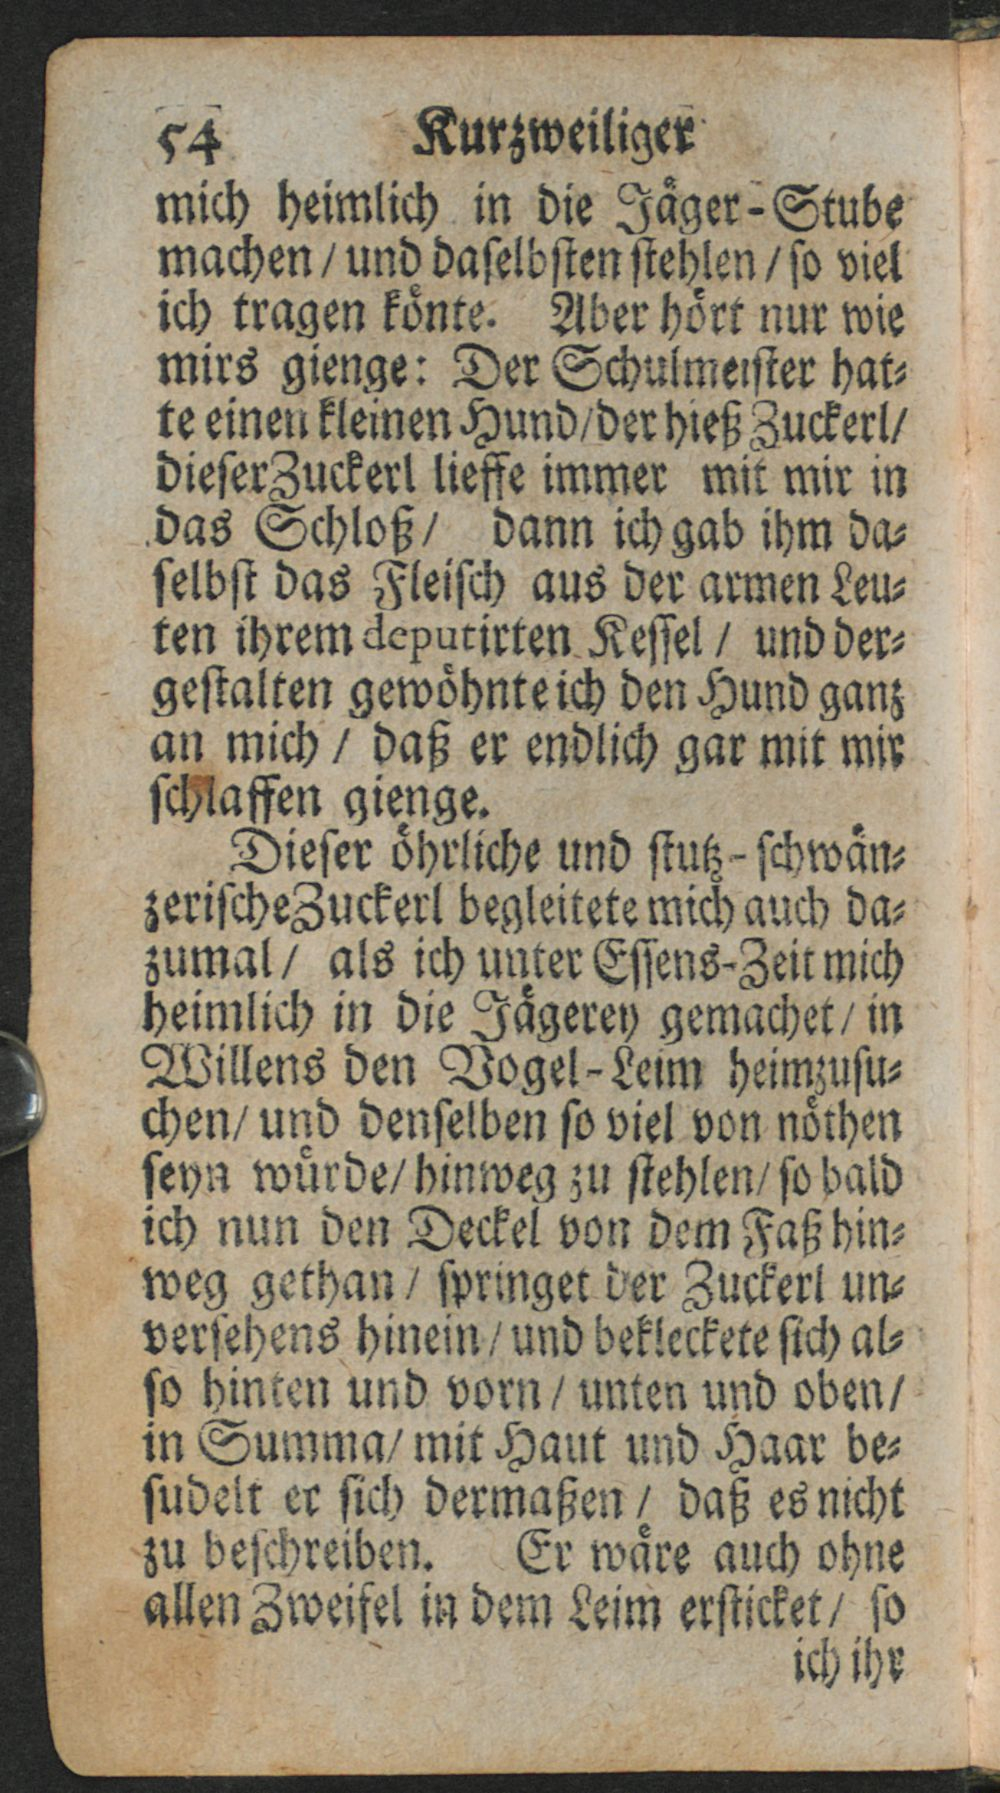 54 Kurzweiliger
mich heimlich in die Jäger-Stube
machen / und daselbsten stehlen / so viel
ich tragen könte. Aber hört nur wie
mirs gienge: Der Schulmeister hat-
te einen kleinen Hund/der hieß Zuckerl/
dieser Zuckerl lieffe immer mit mir in
das Schloß/ dann ich gab ihm da-
selbst das Fleisch aus der armen Leu-
ten ihrem deputirten Kessel / und der-
gestalten gewöhnte ich den Hund ganz
an mich / daß er endlich gar mit mir
schlaffen gienge.
Dieser öhrliche und stutz-schwän-
zerische Zuckerl begleitete mich auch da-
zumal / als ich unter Essens-Zeit mich
heimlich in die Jägerey gemachet / in
Willens den Vogel-Leim heimzusu-
chen/ und denselben so viel von nöthen
seyn würde/ hinweg zu stehlen/ so bald
ich nun den Deckel von dem Faß hin-
weg gethan / springet der Zuckerl un-
versehens hinein / und bekleckete sich al-
so hinten und vorn / unten und oben/
in Summa/ mit Haut und Haar be-
sudelt er sich dermaßen / daß es nicht
zu beschreiben. Er wäre auch ohne
allen Zweifel in dem Leim ersticket / so
ich ihr